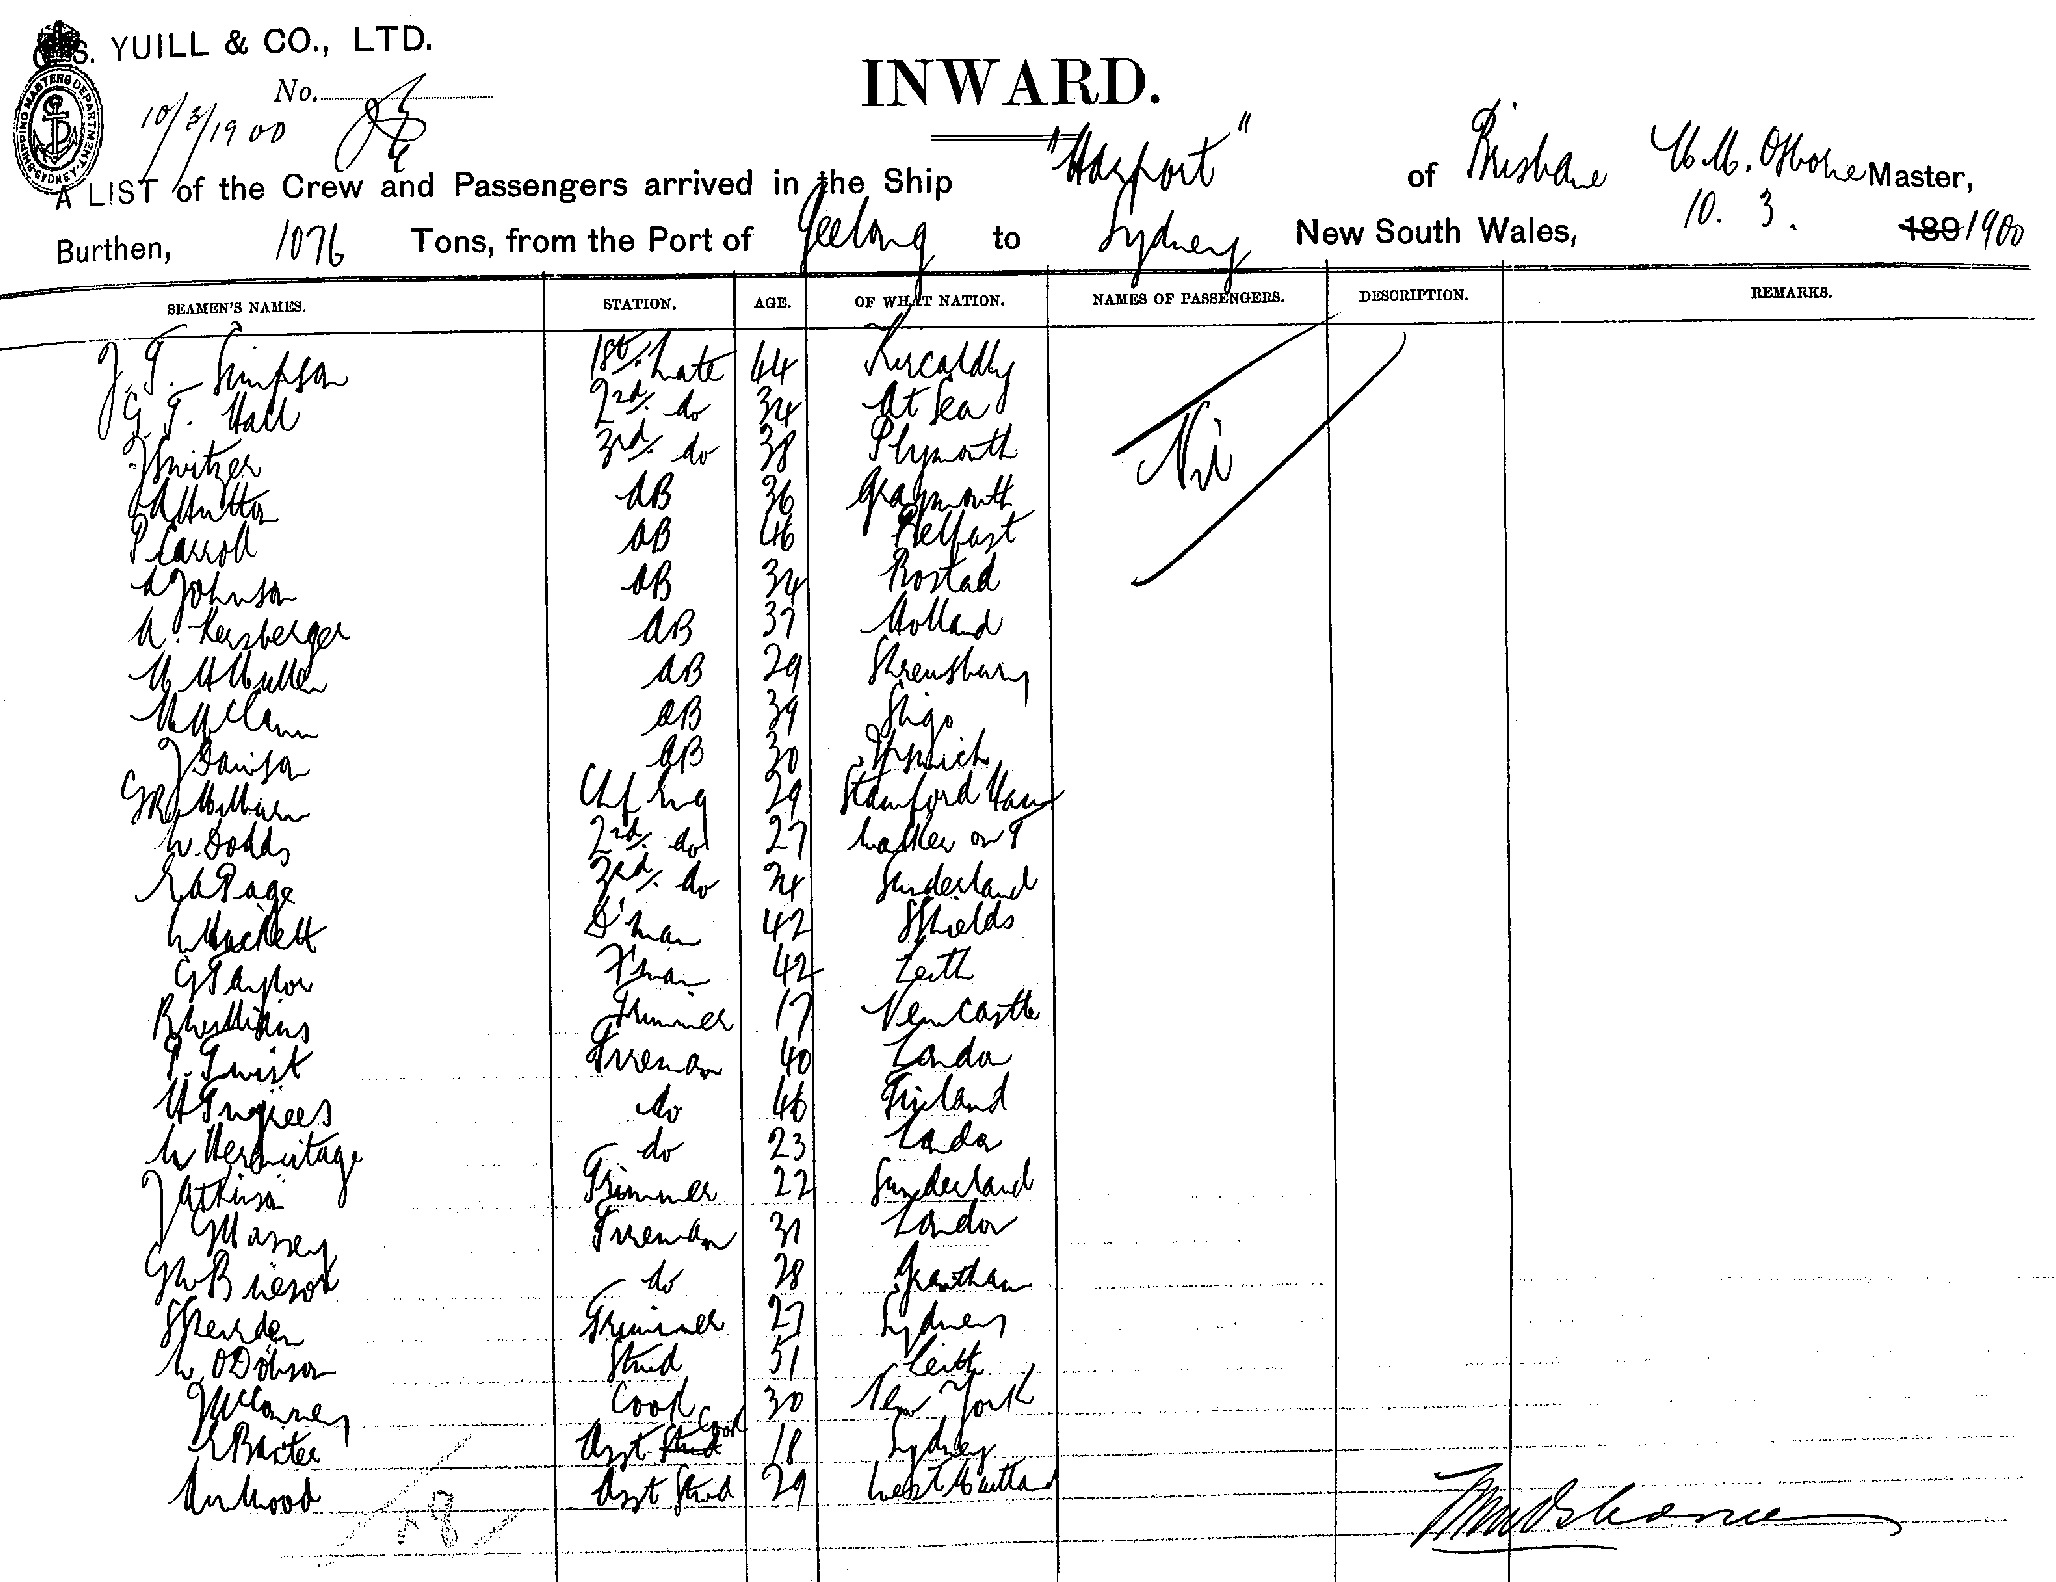 G. S. YUILL & CO., LTD.
SHIPPING MASTERS DEPARTMENT SYDNEY
No.
10/3/1900
INWARD.
A LIST of the Crew and Passengers arrived in the Ship of Brisbane Master,
Burthen, 1076 Tons, from the Port of Geelong to Sydney New South Wales, 10. 3. 189 1900
SEAMEN'S NAMES. STATION. AGE. OF WHAT NATION. NAMES OF PASSENGERS. DESCRIPTION. REMARKS.
J. T. Simpson 1st. Mate 44 Kircaldy
G. T. Hall 2nd. do 34 At Sea
J Switzer 3rd. do 38 Plymouth Nil
A Hutton AB 36 Graymouth
P Carroll AB 46 Belfast
A Johnson AB 34
AB 37 Holland
AB 29 Shrewsbury
M McCann AB 39 Sligo
J Davison AB 30 Ipswich
Chf Eng 29 Stamford Ham
W. Dodds 2nd. do 27 Walker on T
E A Page 3rd. do 24 Sunderland
W Hackett D'man 42 S Shields
G Taylor F'man 42 Leith
Trimmer 17 Newcastle
P. Twist Fireman 40 London
do 46 Finland
W Hermitage do 23 London
J Atkinson Trimmer 22 Sunderland
J G Massey Fireman 31 London
do 28 Grantham
Trimmer 27 Sydney
W. O Dobson Stwd 51 Leith
Cook 30 New York
E Baxter Asst Stwd Cook 18 Sydney
Wood Asst Stwd 29 West Maitland
28